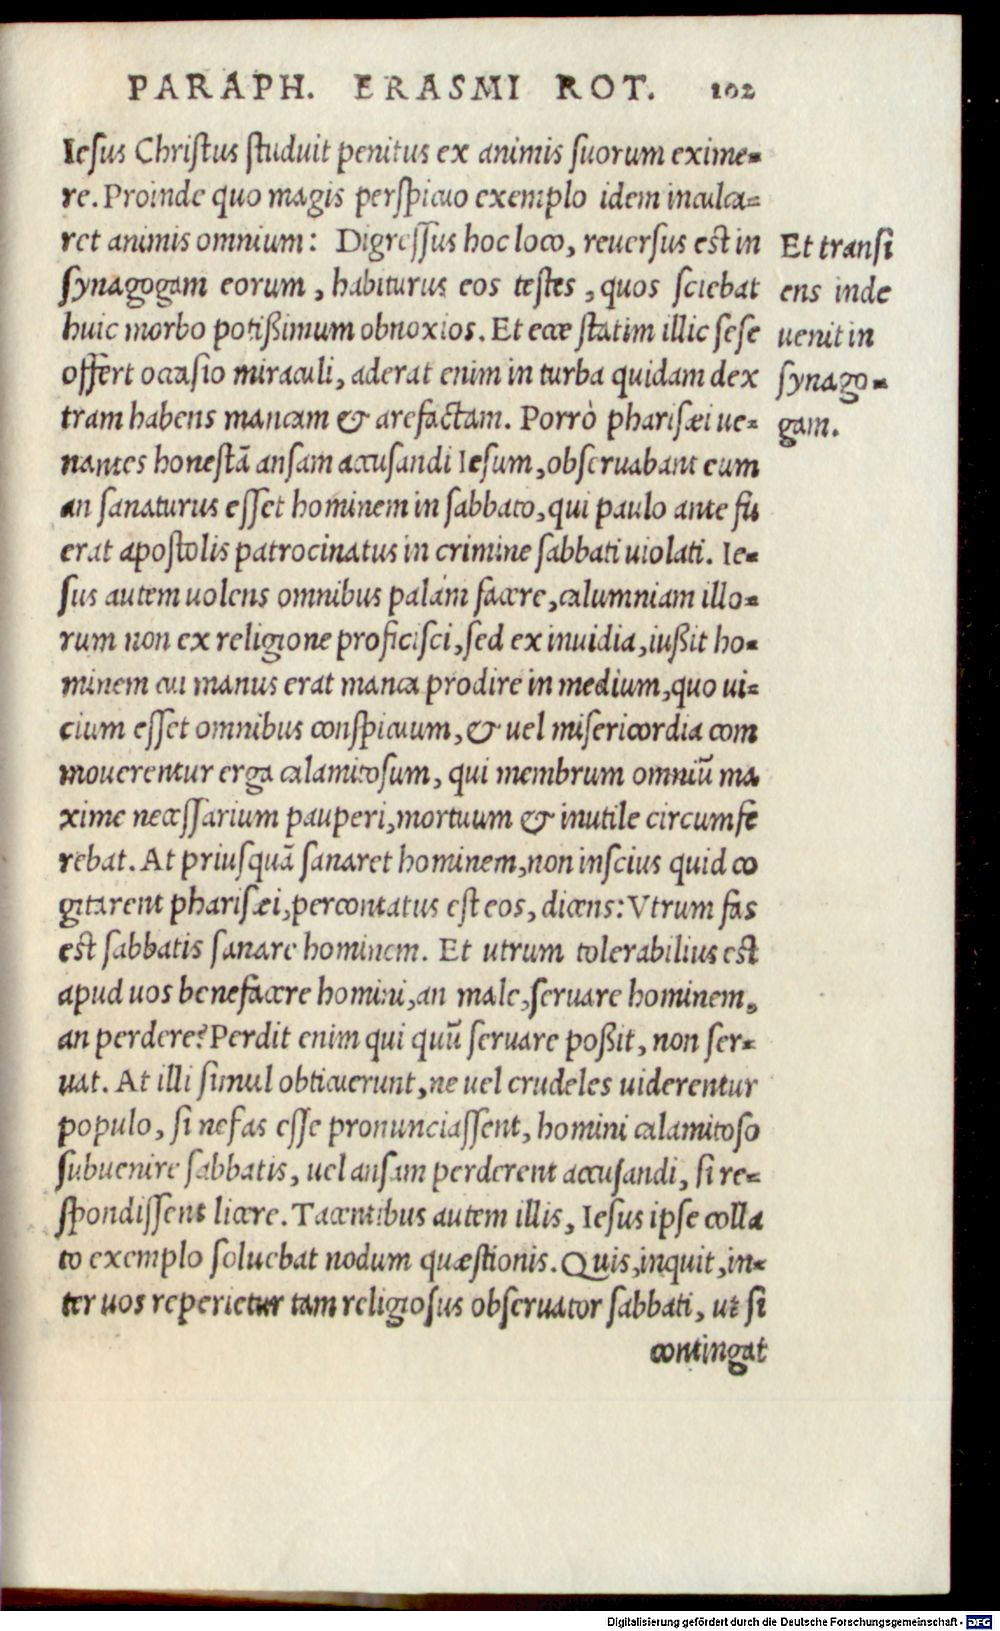 PARAPH. ERASMI ROT. 102
Iesus Christus studuit penitus ex animis suorum exime-
re. Proinde quo magis perspicuo exemplo idem inculca-
ret animis omnium: Digressus hoc loco, reuersus est in
synagogam eorum, habiturus eos testes, quos sciebat
huic morbo potißimum obnoxios. Et ecce statim illic sese
offert occasio miraculi, aderat enim in turba quidam dex
tram habens mancam & arefactam. Porrò pharisæi ue-
nantes honestã ansam accusandi Iesum, obseruabant eum
an sanaturus esset hominem in sabbato, qui paulo ante fu
erat apostolis patrocinatus in crimine sabbati uiolati. Ie-
sus autem uolens omnibus palàm facere, calumniam illo-
rum non ex religione proficisci, sed ex inuidia, iußit ho-
minem cui manus erat manca prodire in medium, quo ui-
cium esset omnibus conspicuum, & uel misericordia com
mouerentur erga calamitosum, qui membrum omniũ ma
xime necessarium pauperi, mortuum & inutile circumfe
rebat. At priusquã sanaret hominem, non inscius quid co
gitarent pharisæi, percontatus est eos, dicens: Vtrum fas
est sabbatis sanare hominem. Et utrum tolerabilius est
apud uos benefacere homini, an male, seruare hominem,
an perdere? Perdit enim qui quũ seruare poßit, non ser-
uat. At illi simul obticuerunt, ne uel crudeles uiderentur
populo, si nefas esse pronunciassent, homini calamitoso
subuenire sabbatis, uel ansam perderent accusandi, si re-
spondissent licere. Tacentibus autem illis, Iesus ipse colla
to exemplo soluebat nodum quæstionis. Quis, inquit, in-
ter uos reperietur tam religiosus obseruator sabbati, ut si
contingat
Et transi
ens inde
uenit in
synago-
gam.
Digitalisierung gefördert durch die Deutsche Forschungsgemeinschaft - DFG